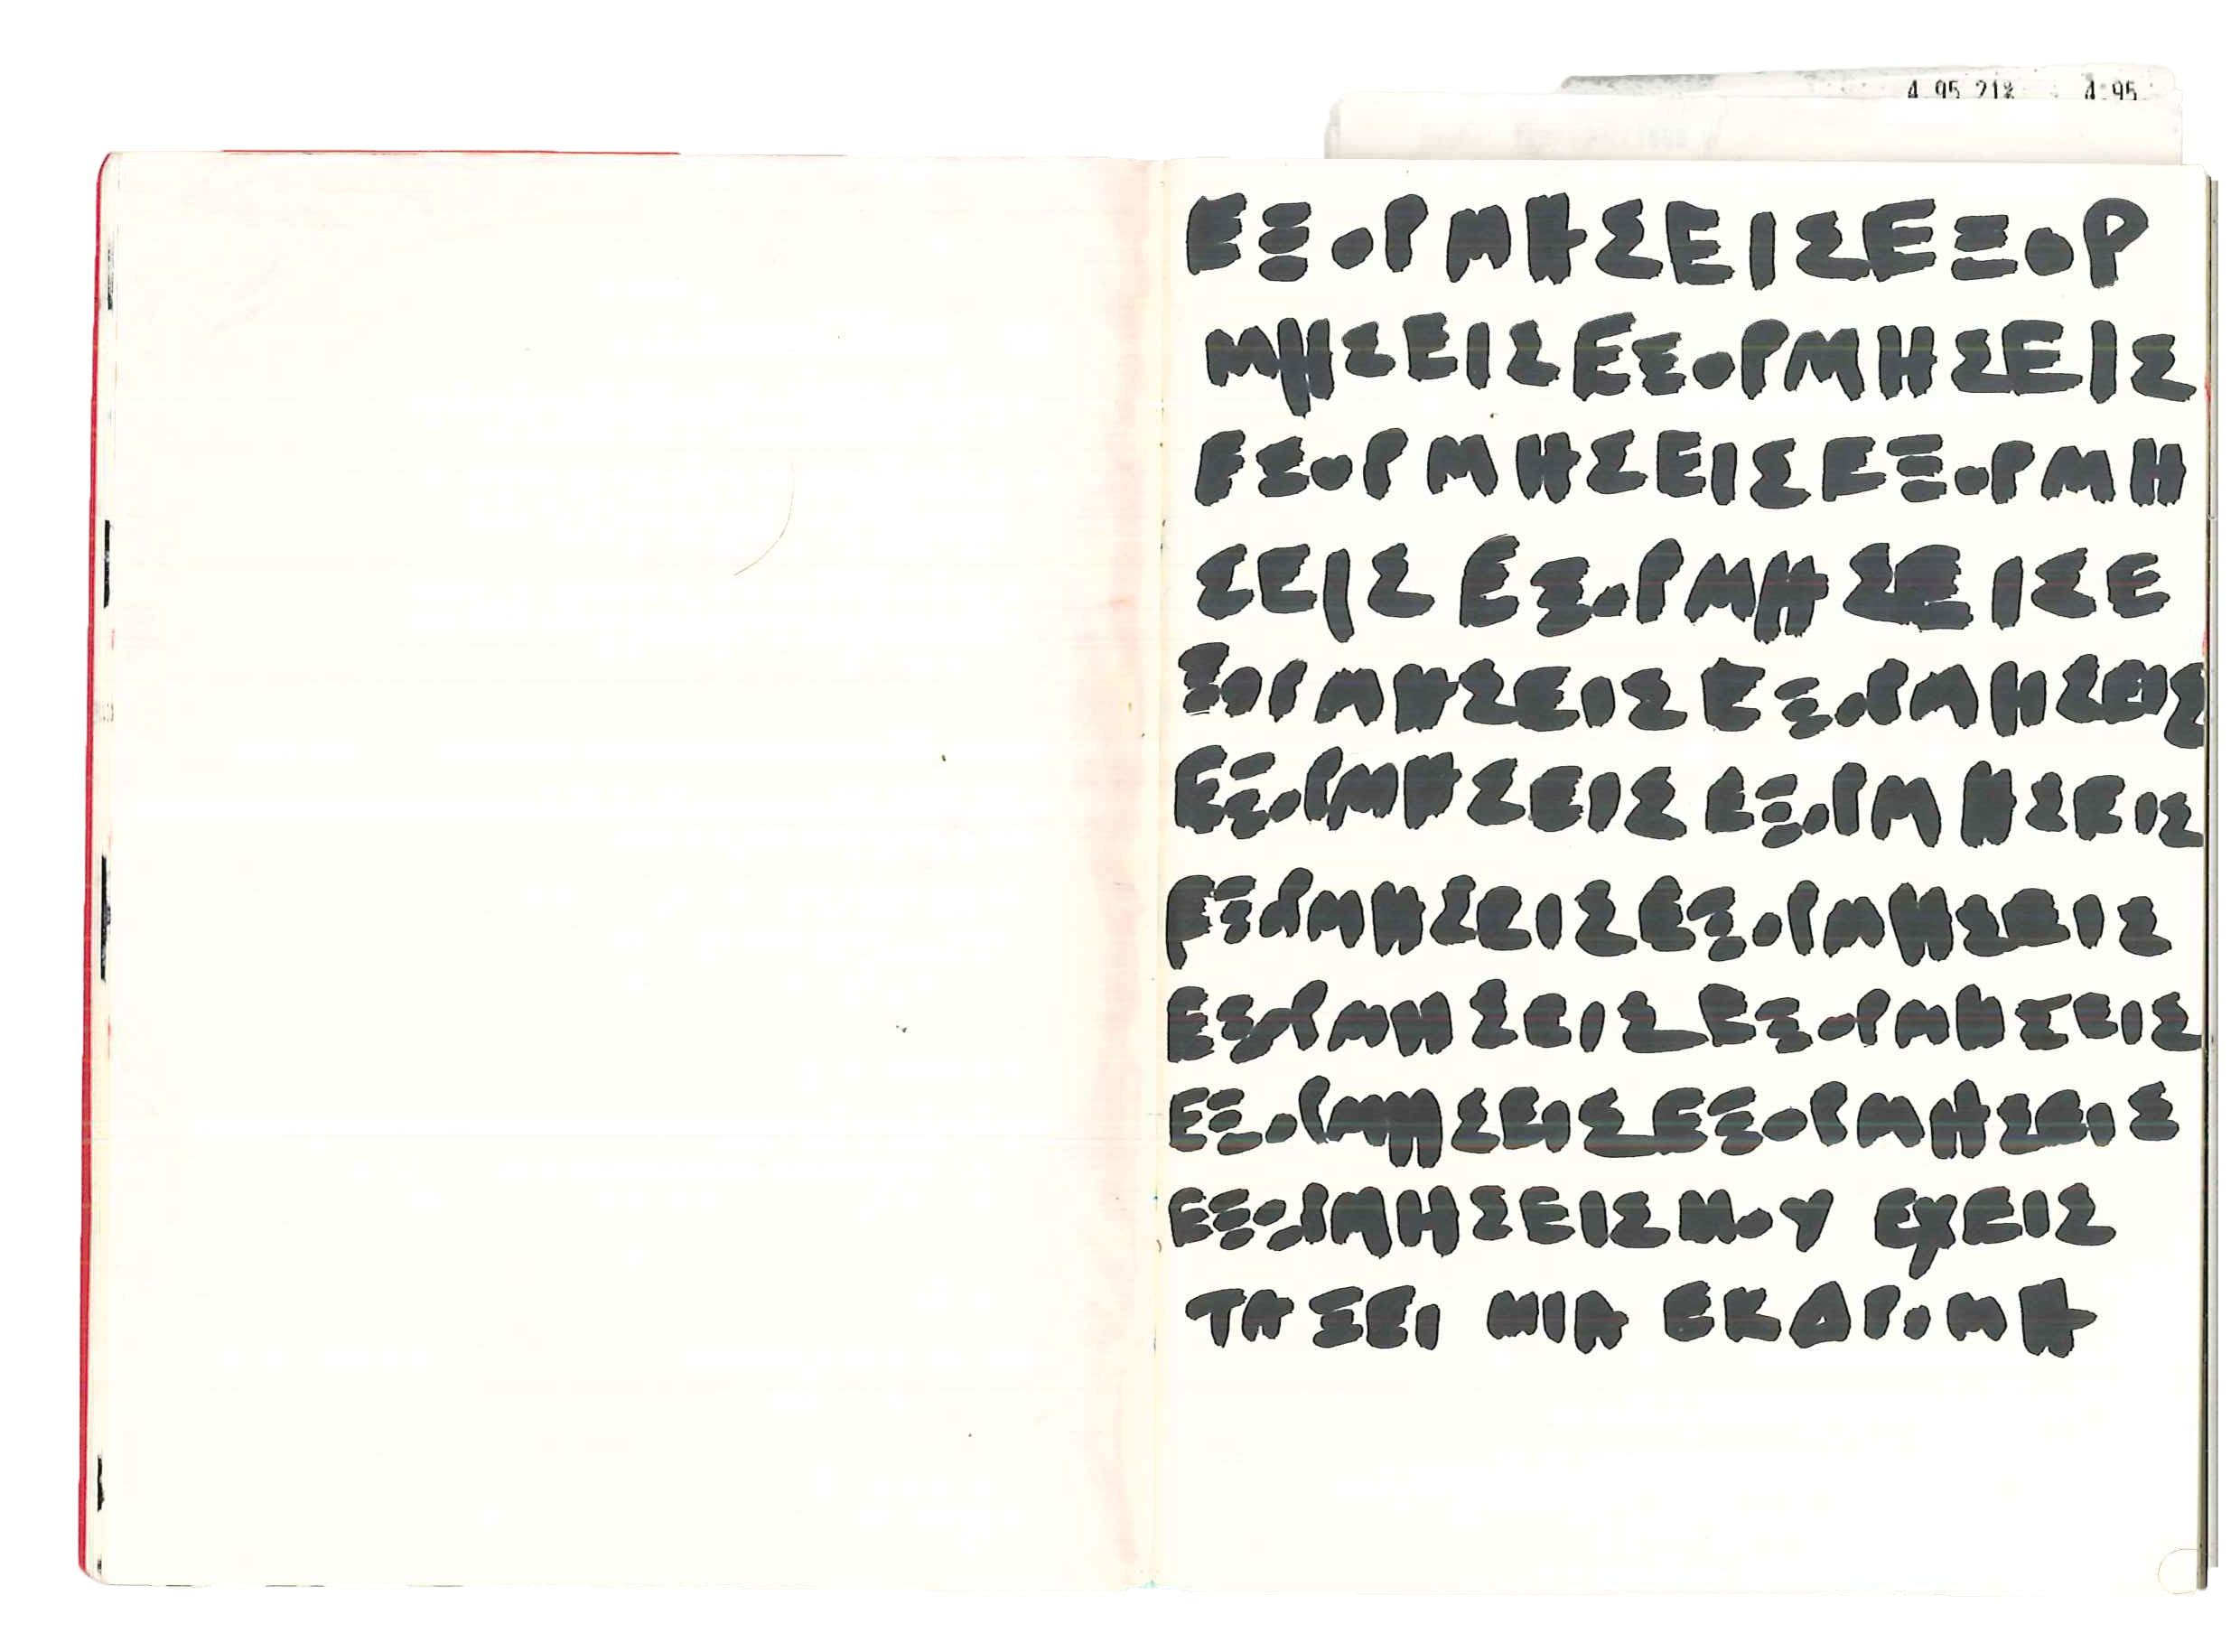 4.95 21% 4.95
ΕΞΟΡΜΗΣΕΙΣΕΞΟΡ
ΜΗΣΕΙΣΕΞΟΡΜΗΣΕΙΣ
ΕΞΟΡΜΗΣΕΙΣΕΞΟΡΜΗ
ΣΕΙΣ ΕΞΟΡΜΗΣΕΙΣΕ
ΞΟΡΜΗΣΕΙΣ ΕΞΟΡΜΗΣΕΙΣ
ΕΞΟΡΜΗΣΕΙΣ ΕΞΟΡΜΗΣΕΙΣ
ΕΞΟΡΜΗΣΕΙΣΕΞΟΡΜΗΣΕΙΣ
ΕΞΟΡΜΗΣΕΙΣΕΞΟΡΜΗΣΕΙΣ
ΕΞΟΡΜΗΣΕΙΣΕΞΟΡΜΗΣΕΙΣ
ΕΞΟΡΜΗΣΕΙΣΜΟΥ ΕΧΕΙΣ
ΤΑΞΕΙ ΜΙΑ ΕΚΔΡΟΜΗ